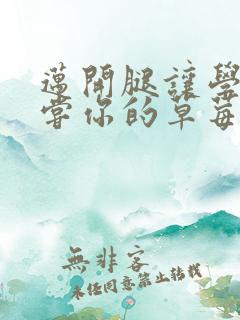 邁開腿讓學
嘗你的草莓
無非客
未经同意禁止转载